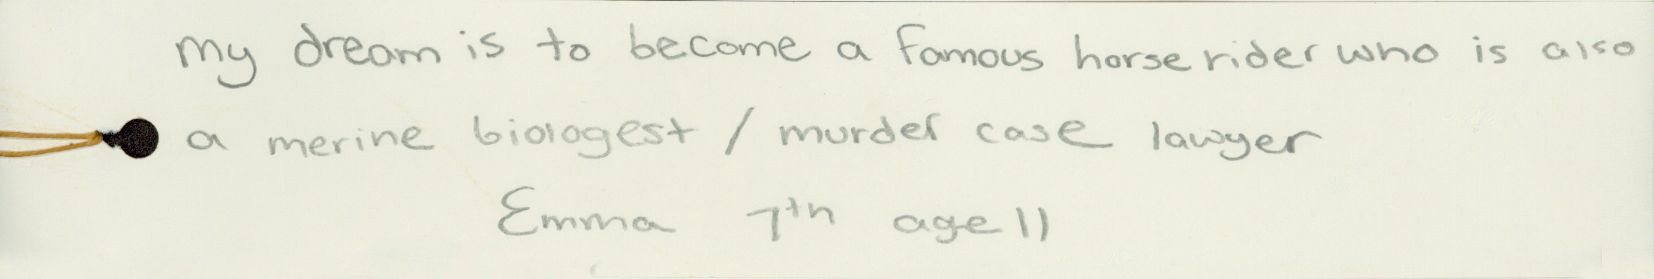 my dream is to become a famous horse rider who is also
a merine biologest / murder case lawyer
Emma 7th age 11